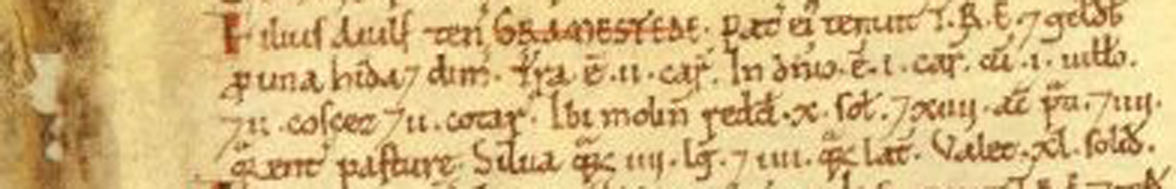 Filius Aiulf ten' GRAMESTEDE. Pat' ei' tenuit T.R.E. ⁊ geldb'
p una hida ⁊ dim'. Tra ē .ii. car'. In dn̄io ē .i. car'. cū .i. uill̄o.
⁊ ii. coscez ⁊ ii. cotar'. Ibi molin̄ redd' .x. sol'. ⁊ xiiii. ac̄ p̄ti. ⁊ iiii.
qrent' pasture. Silua qrz iiii. lg̃. ⁊ iii. qrz lat'. Valet .xl. solid'.